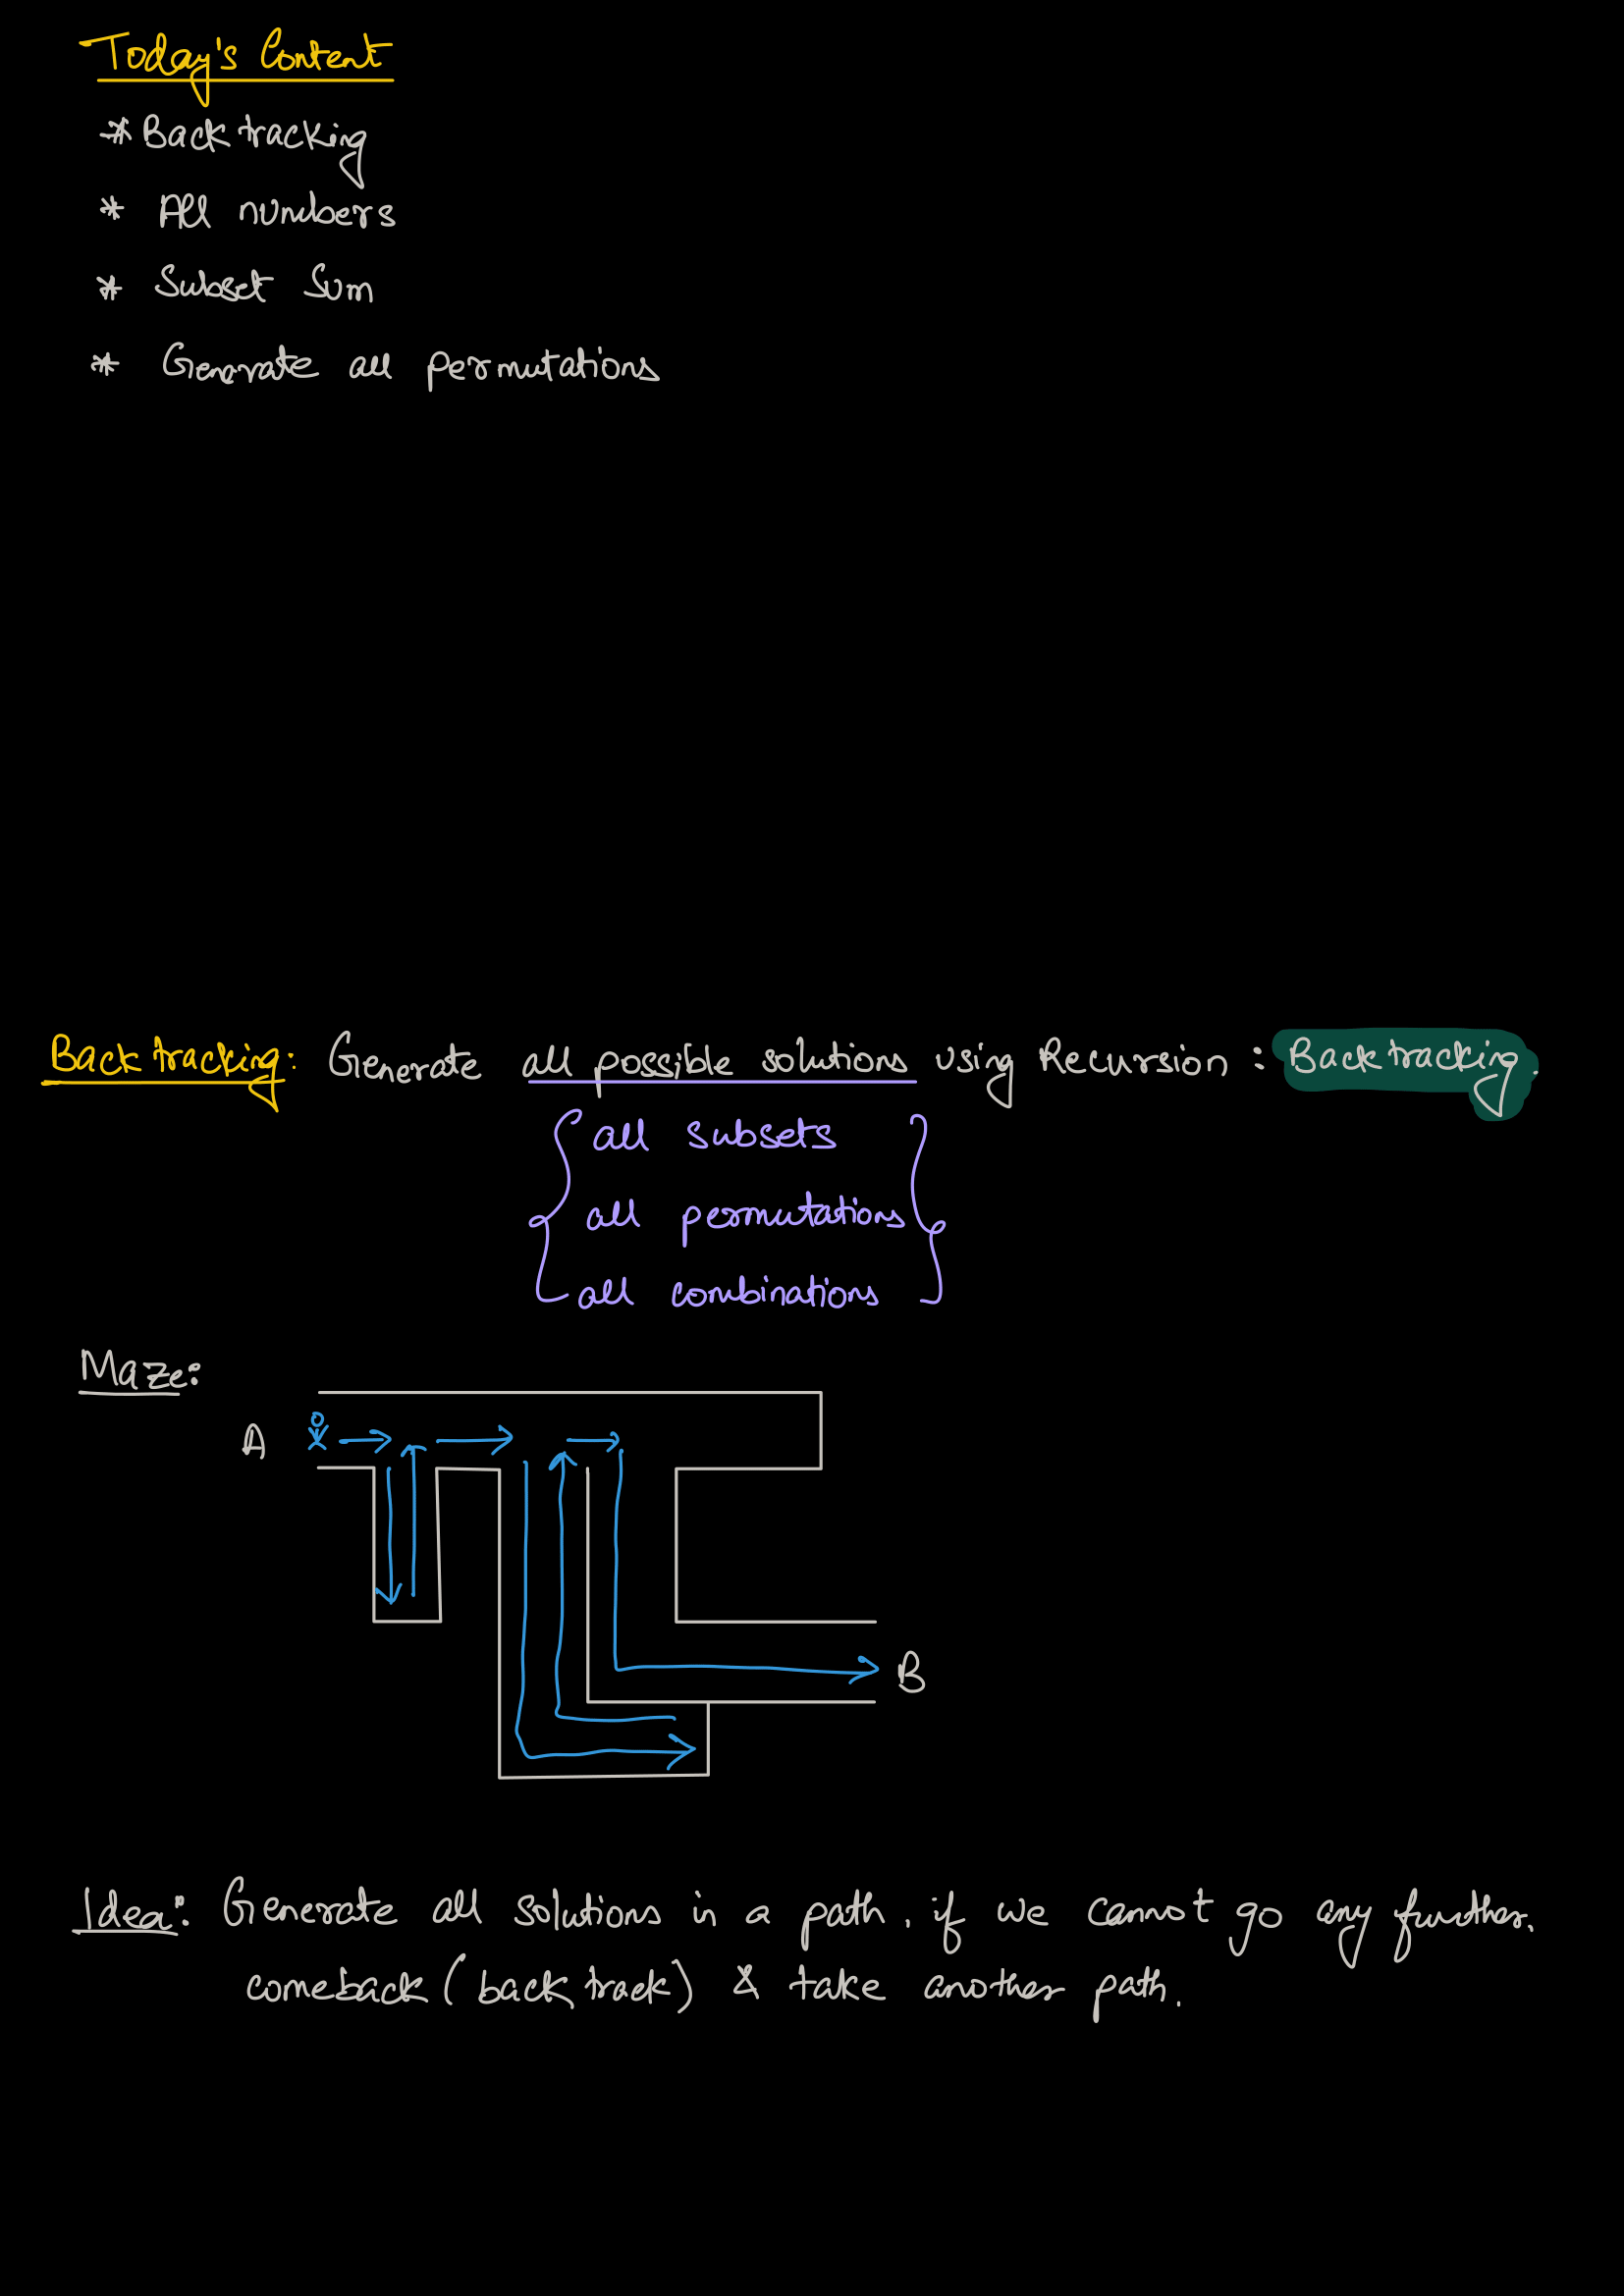 Today's Content
* Backtracking
* All numbers
* Subset Sum
* Generate all permutations
Backtracking: Generate all possible solutions using Recursion : Backtracking.
{ all subsets }
all permutations
all combinations
Maze:
A
B
Idea: Generate all solutions in a path, if we cannot go any further.
comeback (backtrack) & take another path.